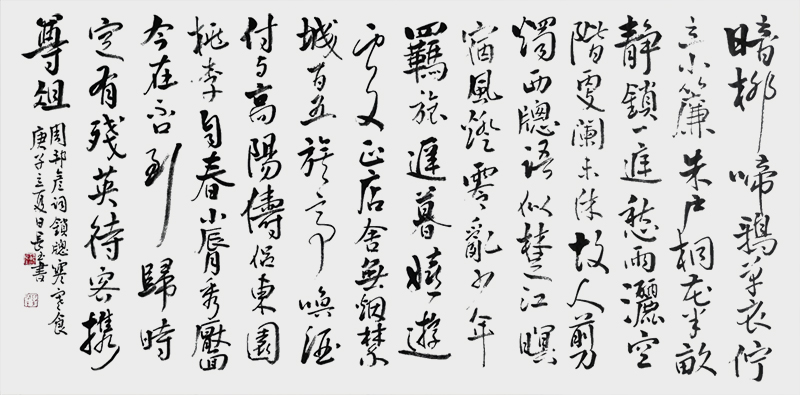 暗柳啼鴉單衣佇
立小簾朱戶桐花半畝
靜鎖一庭愁雨灑空
階更闌未休故人剪
燭西牕語似楚江暝
宿風燈零亂少年
羈旅遲暮嬉遊
處正店舍無烟禁
城百五旗亭喚酒
付與高陽儔侶東園
桃李自春小脣秀靨
今在否到歸時
定有殘英待客攜
尊俎
周邦彥詞鎖牕寒寒食
庚子立夏日書